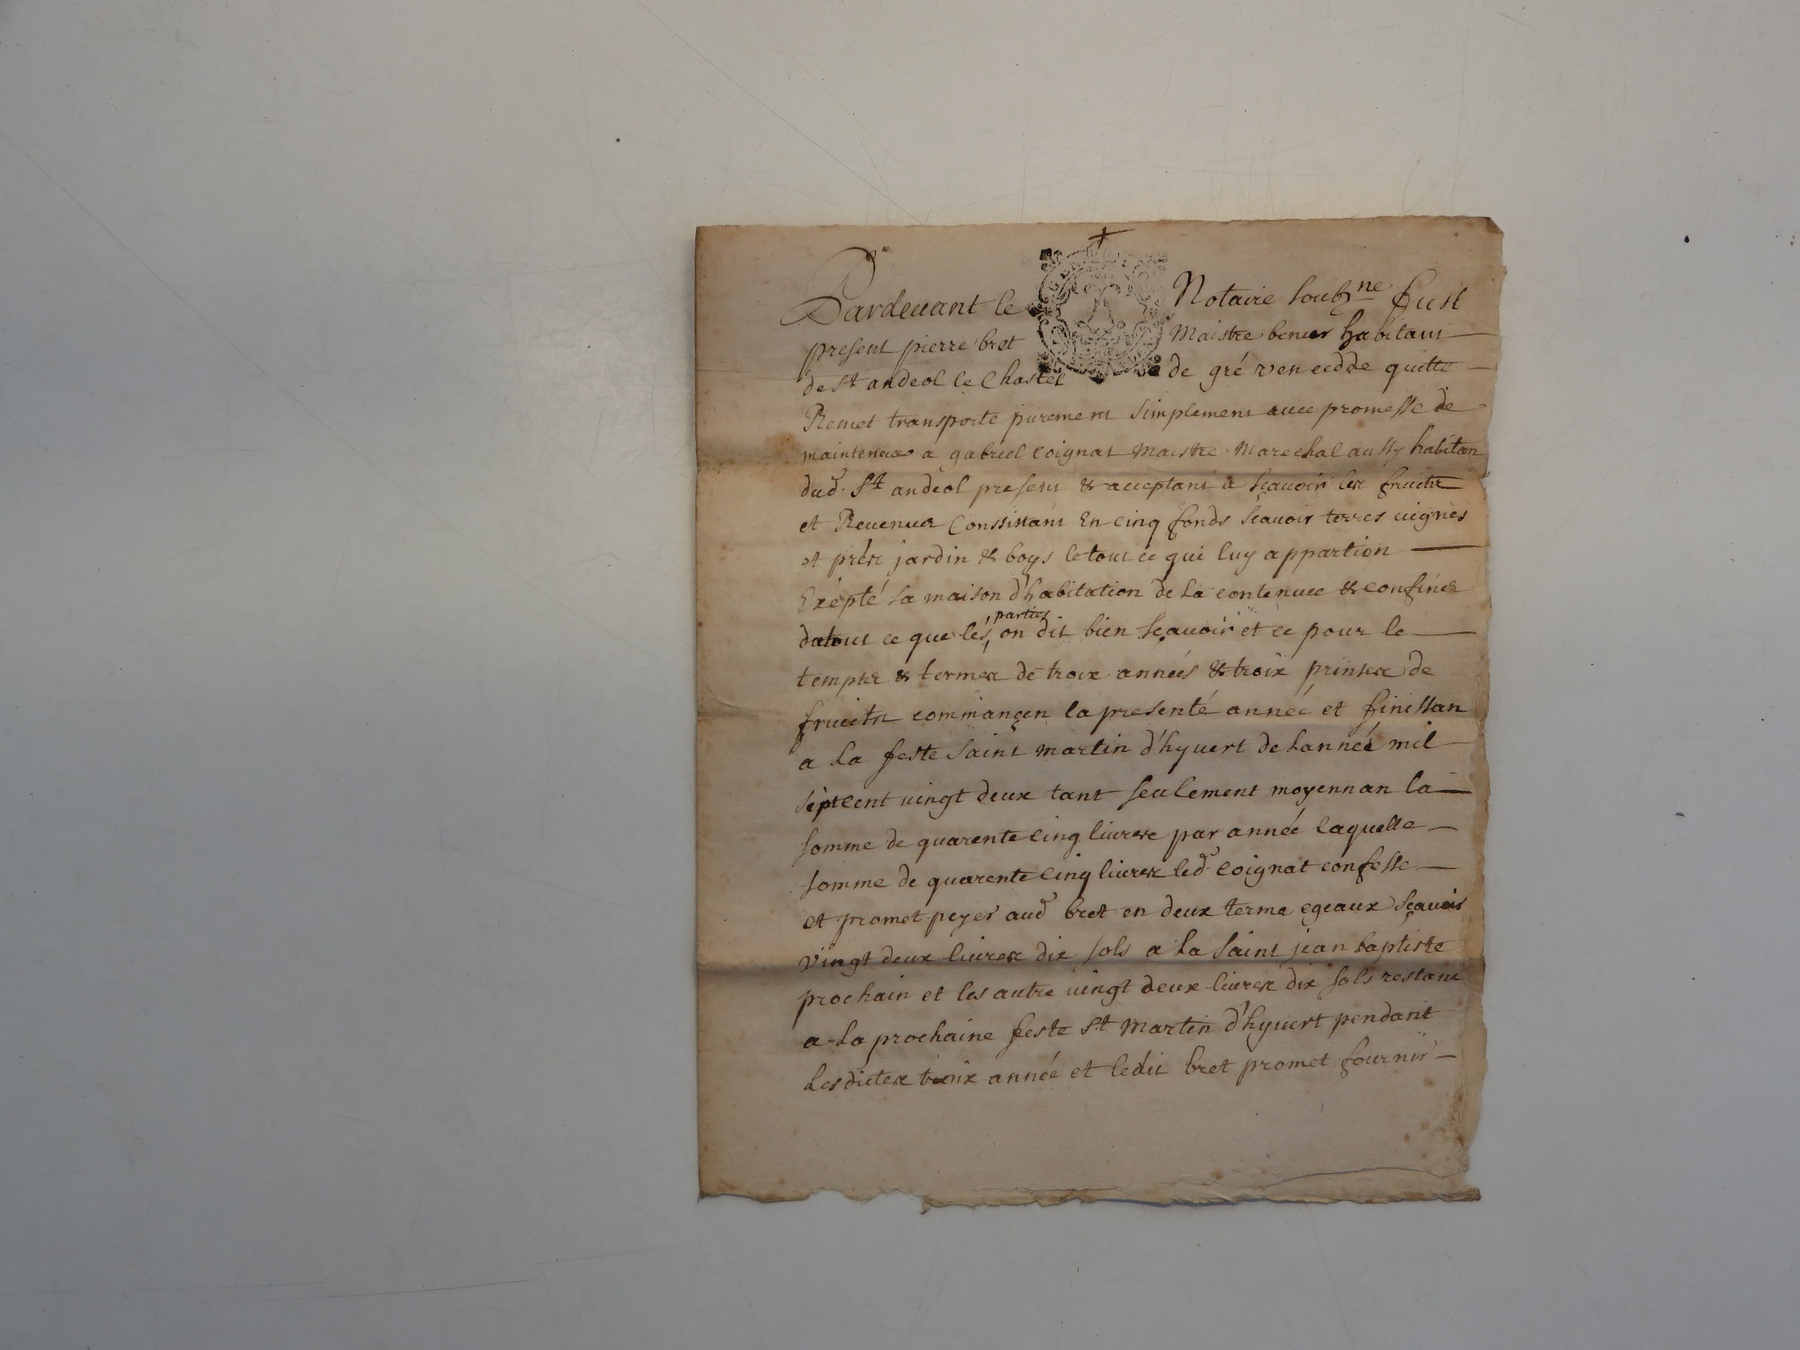 Pardeuant le Notaire soubne. fust
present pierre bret Maistre benier habitant
de st andeol le Chastel de gré ven cedde quitte
Remet transporte purement simplement auec promesse de
maintenüe a gabriel Coignat Maistre Marechal aussy habitan
dud. St andeol present & acceptant a scauoir les fruicts
et Reuenues Conssistant En cinq fonds scauoir terres uignes
et prés jardin & boys le tout ce qui luy appartion
Exépté la maison d'habitation de la contenuee & confines
datout ce que les parties on dit bien sçauoir et ce pour le
temps & termes de troix années & troix prinses de
fruicts commançen la presenté année et finissan
a la feste saint martin d'hyuert de lanneé mil
septcent uingt deux tant seulement moyennan la
somme de quarente cinq liures par année laquelle
somme de quarente cinq liures led. Coignat confesse
et promet peyer aud bret en deux terme egeaux sçauoir
vingt deux liures dix sols a la saint jean baptiste
prochain et les autre uingt deux liures dix sols restant
a la prochaine feste st Martin d'hyuert pendant
Lesdictes troix année et ledit bret promet fournir